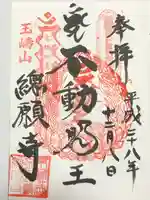 奉拝
平成二十八年
十二月八日
不動明王
玉嶹山
總願寺